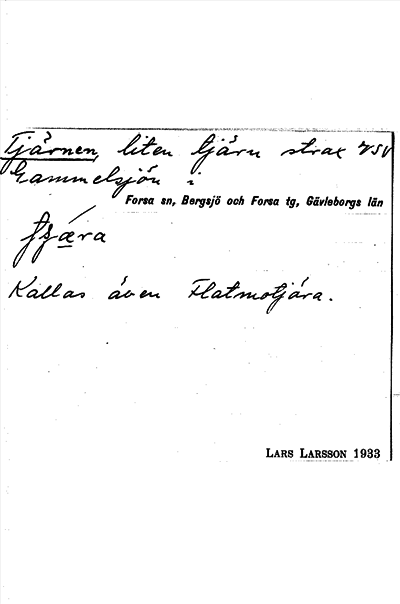 Tjärnen, liten tjärn strax VSV
Gammelsjön i
Forsa sn, Bergsjö och Forsa tg, Gävleborgs län
Kallas även Flatmotjära.
LARS LARSSON 1933